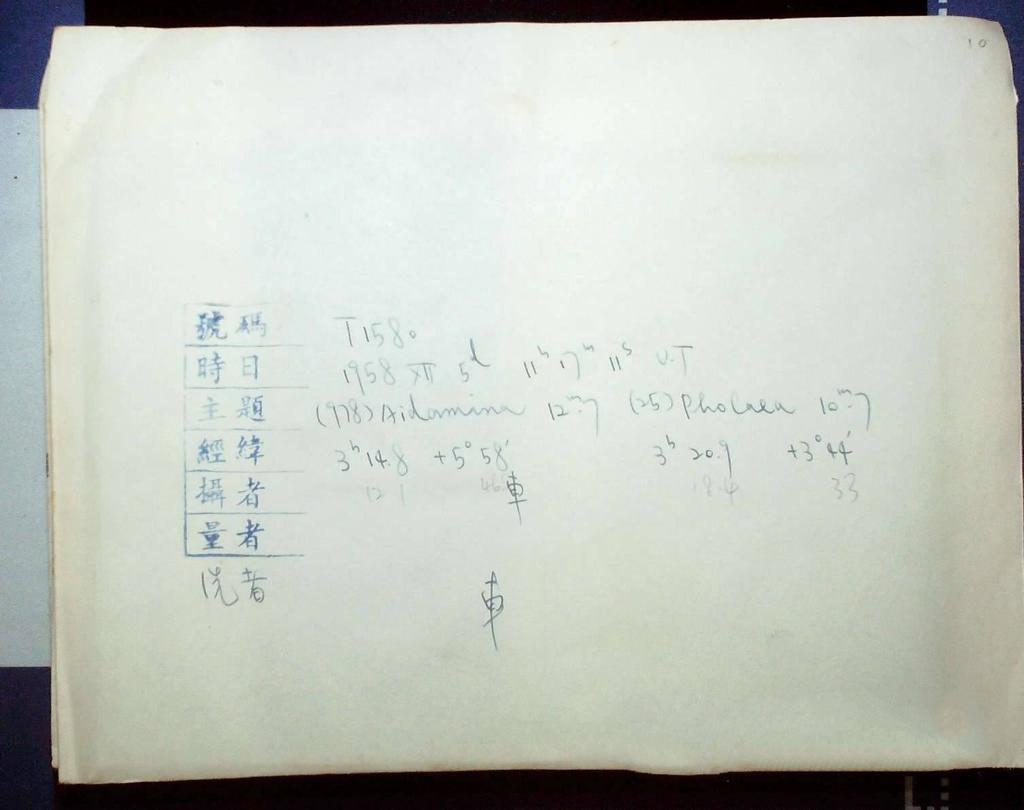 10
號碼 T1580
時日 1958 XII 5d 11h 17m 11s U.T
主題 (978) Aidamina 12m.7 (25) Phocaea 10m.7
經緯 3h 14.8 +5° 58' 3h 20.9 +3° 44'
攝者 12.1 46 車 18.4 33
量者
洗者 車